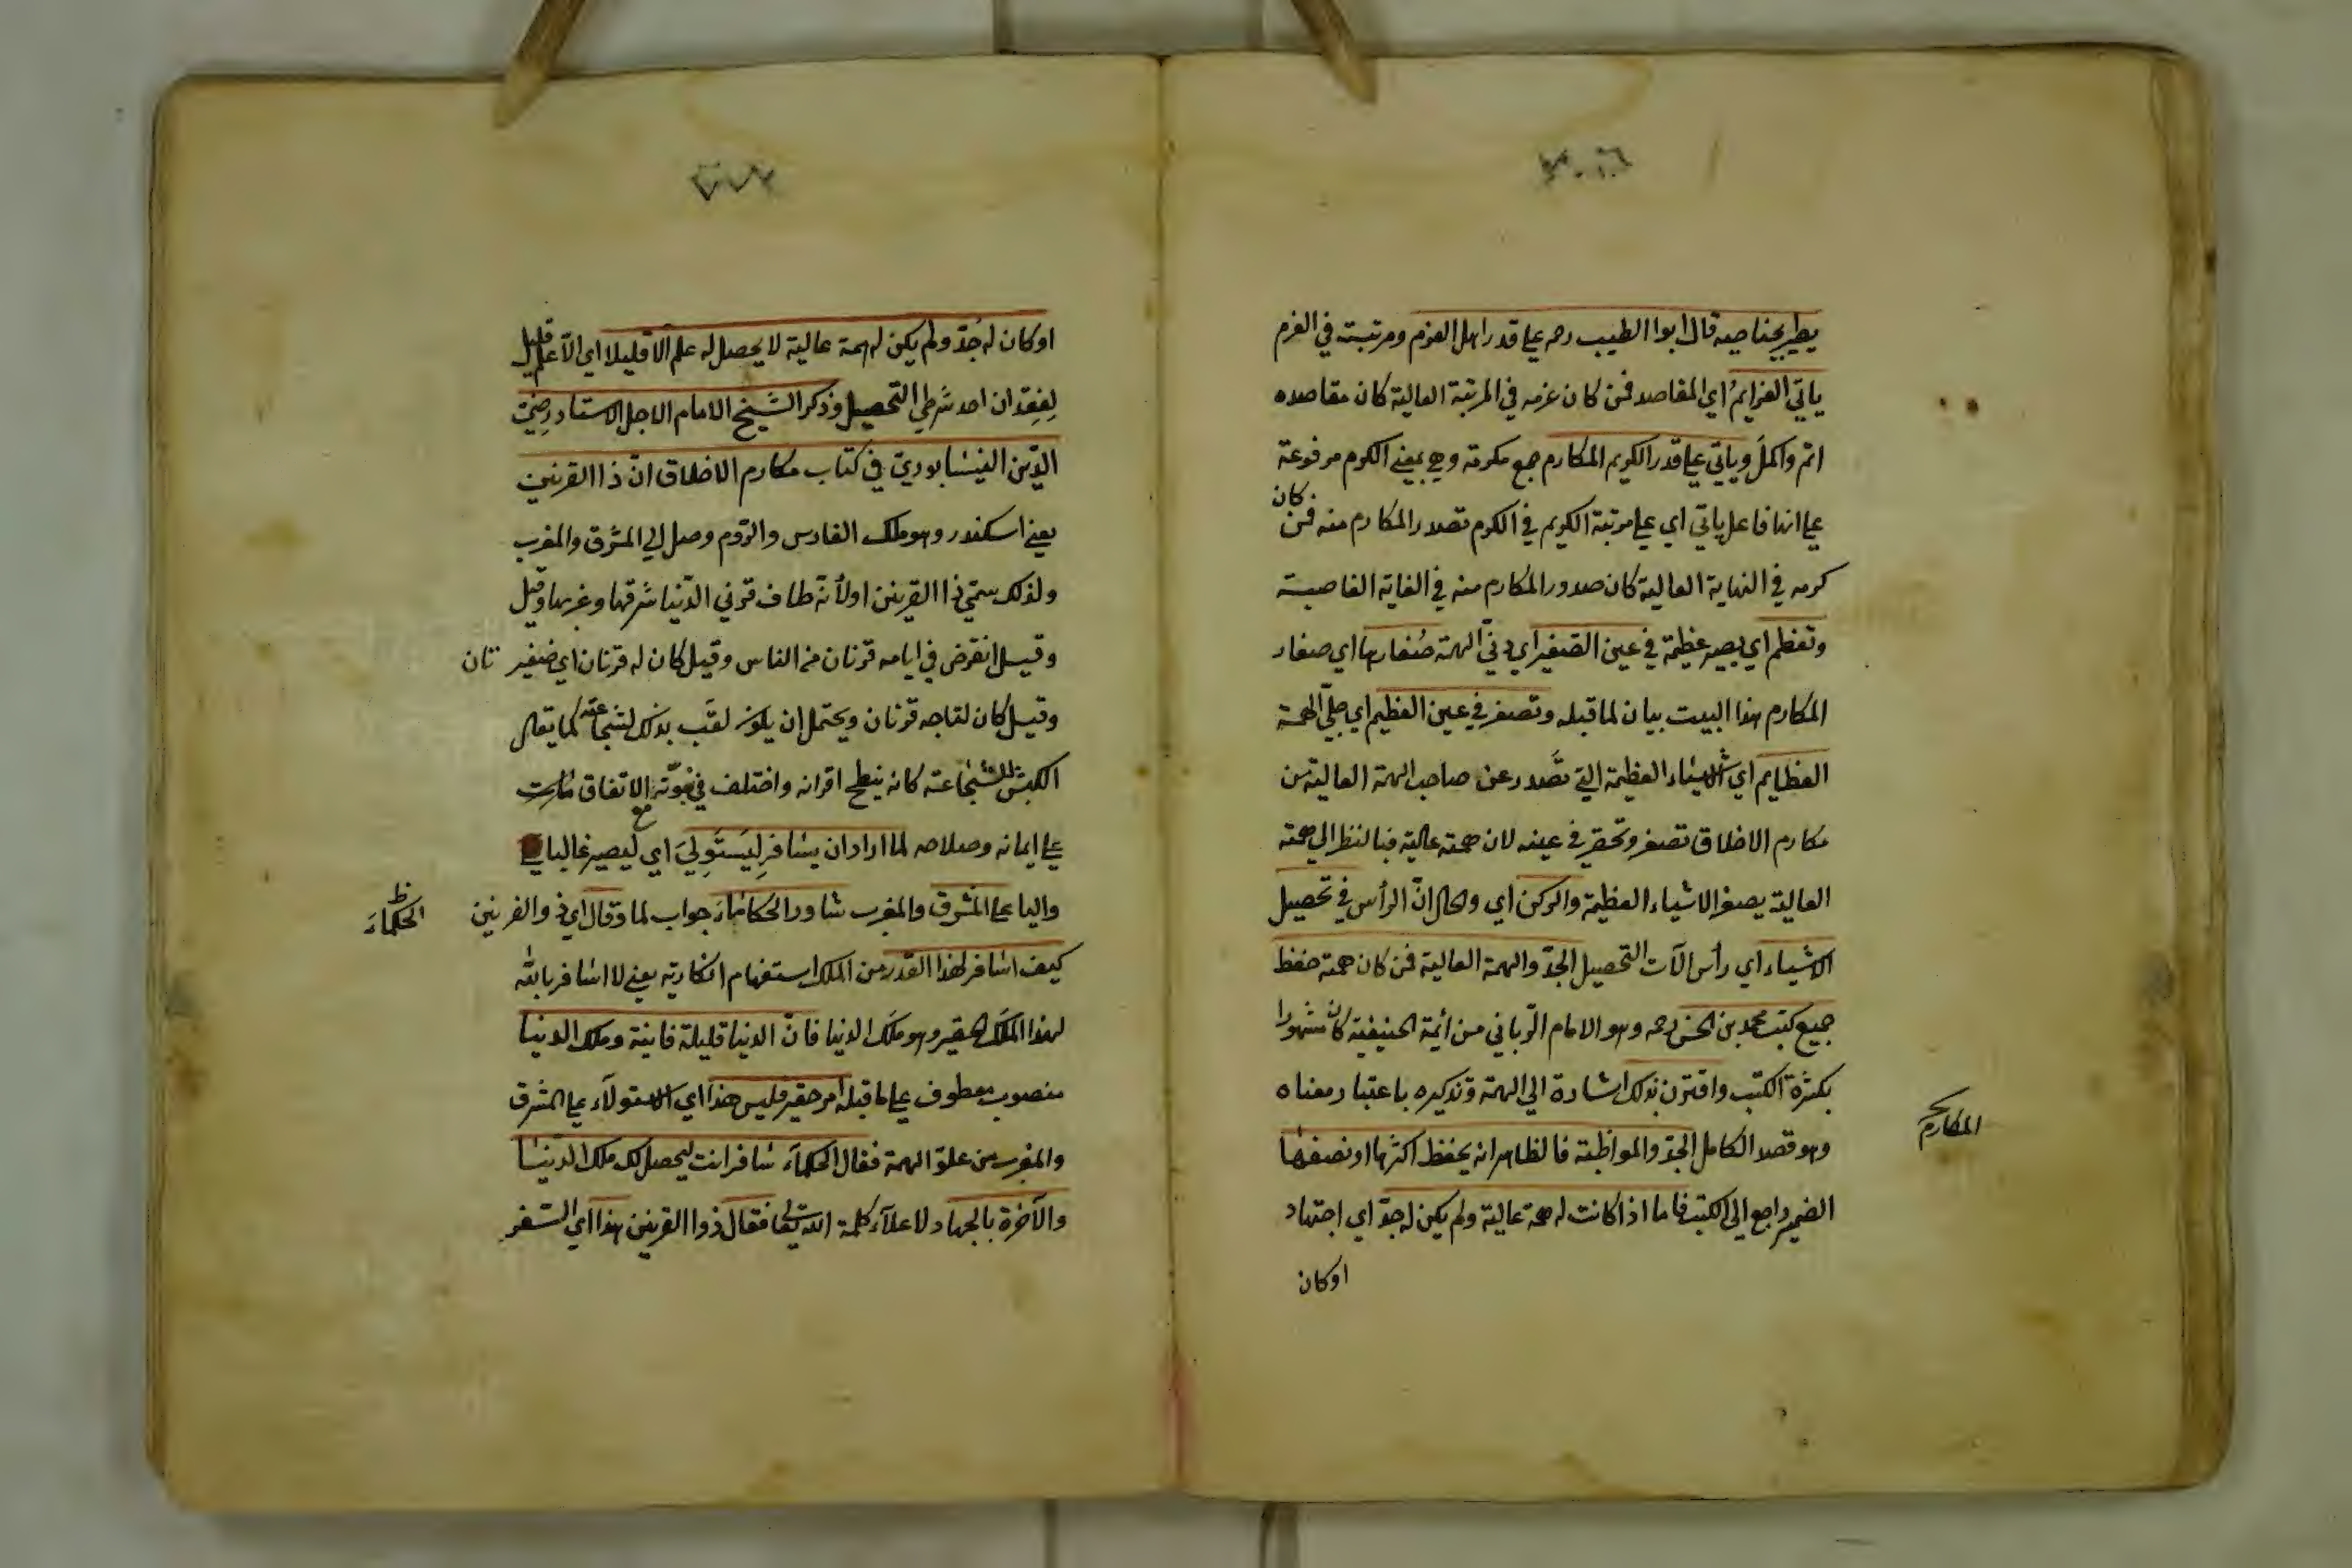 يطير بجناحيه قال ابوا الطيب رحمه على قدر اهل العزم ومرتبته في العزم
ياتي العزايمُ اي المقاصد فمن كان عزمه في المرتبة العالية كان مقاصده
اتم واكملَ وياتي على قدر الكريم المكارم جمع مكرمة وهي بمعنى الكرم مرفوعة
على انها فاعل ياتي اي على مرتبة الكريم في الكرم تصدر المكارم منه فمن كان
كرمه في النهاية العالية كان صدور المكارم منه في الغاية القاصية
وتعظم اي يصير عظيمة في عين الصّغير اي دنيّ الهمة صُغارها اي صغار
المكارم هذا البيت بيان لما قبله وتصغر في عين العظيم اي جليّ الهمة
العظايم اي الاشياء العظيمة التي تصدر عن صاحب الهمة العالية من
مكارم الاخلاق تصغر وتحقر في عينه لان همته عالية فبالنظر الى همته
العالية يصغر الاشياء العظيمة والركن اي والحال انّ الرأس في تحصيل
الاشياء اي رأس الآت التحصيل الجدّ والهمة العالية فمن كان همته حفظ
جميع كتب محمد بن الحسن رحمه وهو الامام الرّباني من ائمة الحنيفية كان مشهورا
بكثرة الكتب واقترن بذلك اشارة الى الهمة وتذكيره باعتبار معناه
المكارم
وهو قصد الكامل الجدّ والمواظبة فالظاهر انه يحفظ اكثرها او نصفها
الضمير راجع الى الكتب فاما اذا كانت له همة عالية ولم يكن له جدّ اي اجتهاد
او كان
او كان له جُدّ ولم يكن له همة عالية لا يحصل له علم الا قليلا اي الاّ علم قليل
لِفقدان احد شرطي التحصيل وذكر الشّيخ الامام الاجل الاستاد رضيّ
الدّين النيسابوريّ في كتاب مكارم الاخلاق انّ ذا القرنين
يعني اسكندر وهو ملك الفارس والرّوم وصل الى المشرق والمغرب
ولذلك سمّي ذا القرينن اولأنّه طاف قرني الدّنيا شرقها وغربها وقيل
وقيل انقرض في ايامه قرنان من الناس وقيل كان له قرنان اي ضفير تان
وقيل كان لتاجه قرنان ويحتمل ان يكون لقّب بذلك لشجاعته كما يقال
الكبش للشجاعته كانه ينطح اقرانه واختلف في نبوّته مع الاتفاق
على ايمانه وصلاحه لما اراد ان يسافر لِيَستَولِيَ اي ليصير غالبا
واليا على المشرق والمغرب شاور الحكاماء جواب لما وقال اي ذو القرنين
الحكماءَ
كيف اسافر لهذا القدر من الملك استفهام انكارية يعني لا اسافر بالله
لهذا الملك الحقير وهو ملك الدنيا فانّ الدنيا قليلة فانية وملك الدنيا
منصوب معطوف على ما قبله امر حقير فليس هذا اي الاستولآء على المشرق
والمغرب من علوّ الهمة فقال الحكماءَ سافر انت ليحصل لك ملك الدّنيا
والآخرة بالجهاد لاعلآء كلمة الله تعالى فقال ذوا القرنين هذا اي السّفر